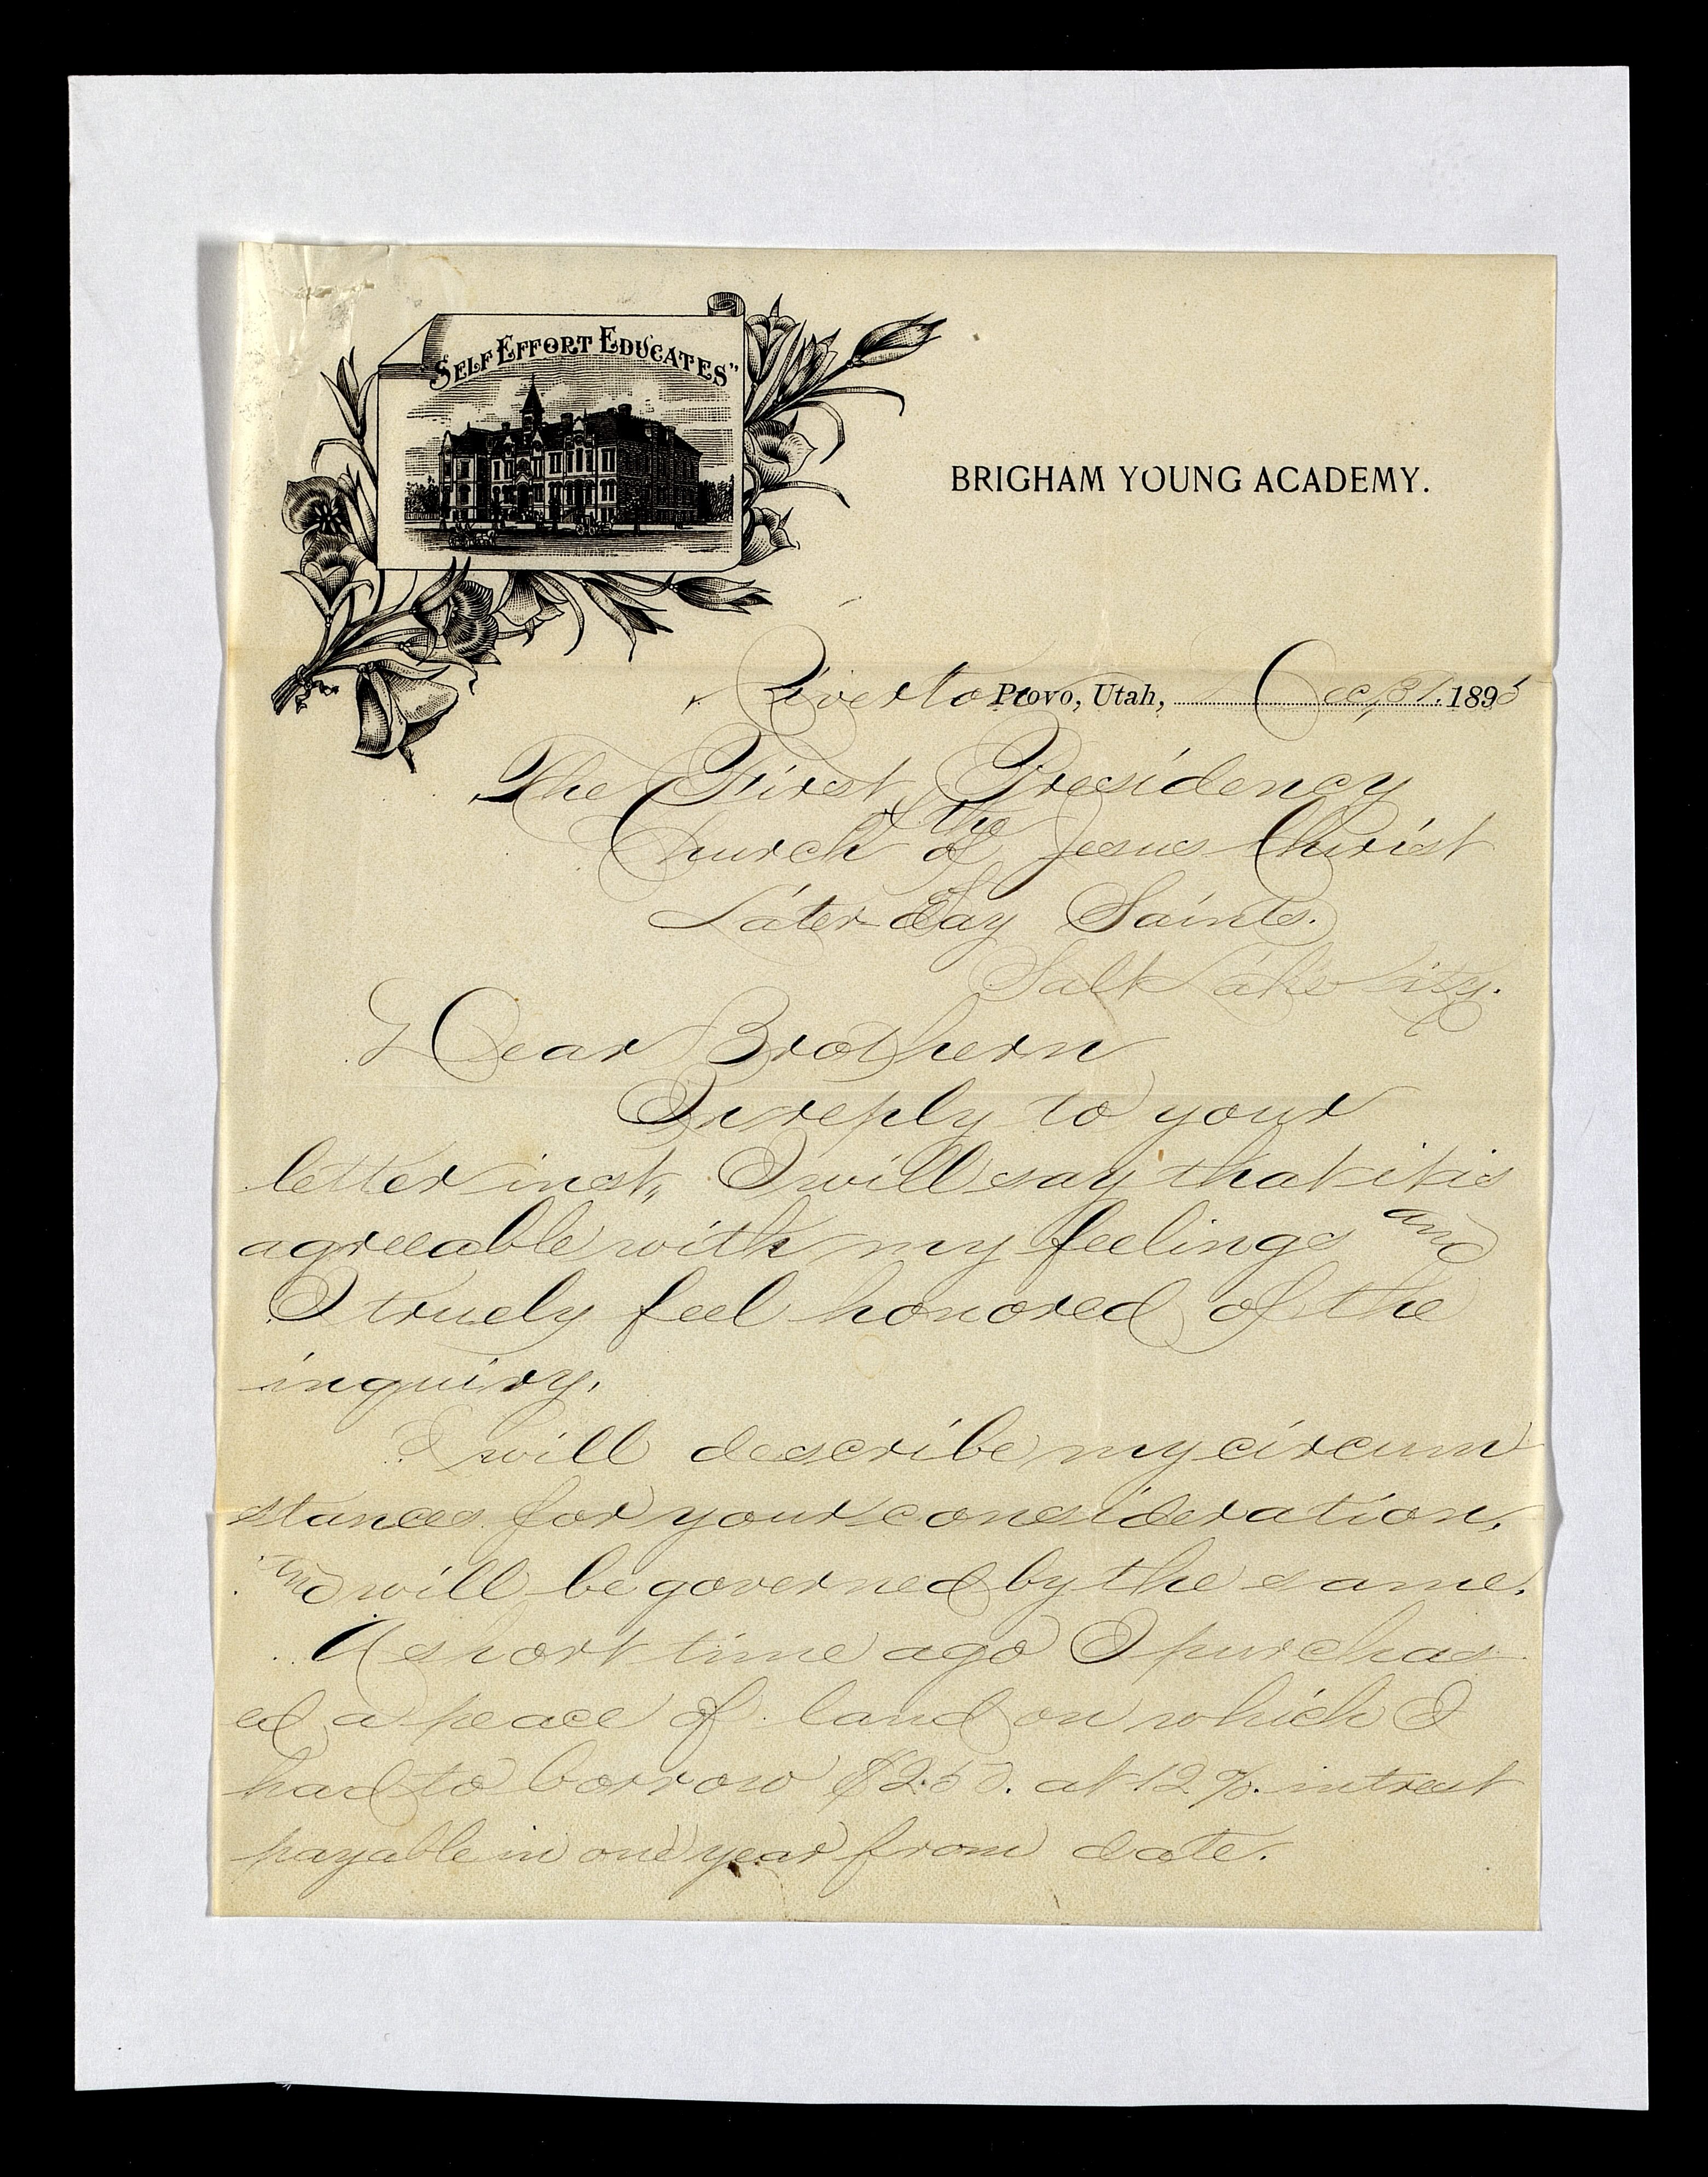 "SELF EFFORT EDUCATES"
BRIGHAM YOUNG ACADEMY.
Riverton Provo, Utah, Dec, 31. 1895
The First Presidency
of the
Church of Jesus Christ
Later-day Saints.
Salt Lake City.
Dear Brothern
In reply to your
letter inst,, I will say that it is
agreeable with my feelings and
I truely feel honored of the
inquiry.
I will describe my circum
stances for your consideration.
and will be governed by the same.
A short time ago I purchas
ed a peace of land on which I
had to borrow $250. at 12%. intrest
payable in one year from date.